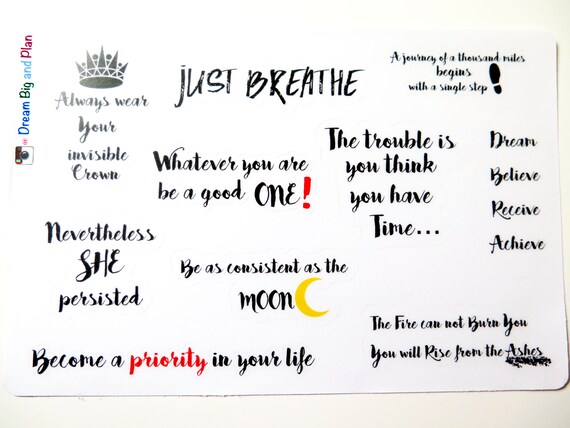 Dream Big and Plan
Always wear
Your
invisible
Crown
JUST BREATHE
A journey of a thousand miles
begins
with a single step
Whatever you are
be a good ONE!
The trouble is
you think
you have
Time...
Dream
Believe
Receive
Achieve
Nevertheless
SHE
persisted
Be as consistent as the
MOON
The Fire can not Burn You
You will Rise from the Ashes
Become a priority in your life